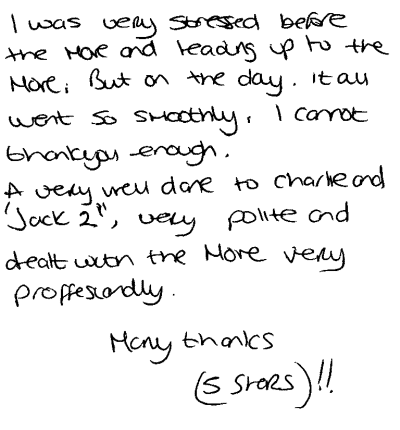 I was very stressed before
the move and leading up to the
move; But on the day. it all
went so smoothly, I cannot
thankyou enough.
A very well done to Charlie and
"Jack 2", very polite and
dealt with the move very
proffesionally.
Many thanks
(5 STARS)!!